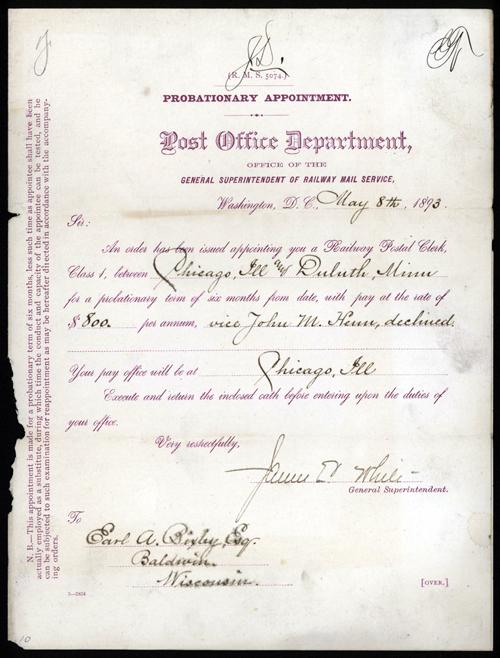 J.D.
(R. M. S. 5074.)
PROBATIONARY APPOINTMENT.
Post Office Department,
OFFICE OF THE
GENERAL SUPERINTENDENT OF RAILWAY MAIL SERVICE,
Washington, D. C., May 8th, 1893.
Sir:
An order has been issued appointing you a Railway Postal Clerk,
Class 1, between Chicago, Ill and Duluth, Minn
for a probationary term of six months from date, with pay at the rate of
$ 800. per annum, vice John M. Henn, declined.
Your pay office will be at Chicago, Ill
Execute and return the inclosed oath before entering upon the duties of
your office.
Very respectfully,
James E. White
General Superintendent.
To
Earl A. Bixby, Esq.
Baldwin.
Wisconsin.
[OVER.]
N. B.—This appointment is made for a probationary term of six months, less such time as appointee shall have been
actually employed as a substitute, during which time the conduct and capacity of the appointee can be tested, and he
can be subjected to such examination for reappointment as may be hereafter directed in accordance with the accompany-
ing orders.
10